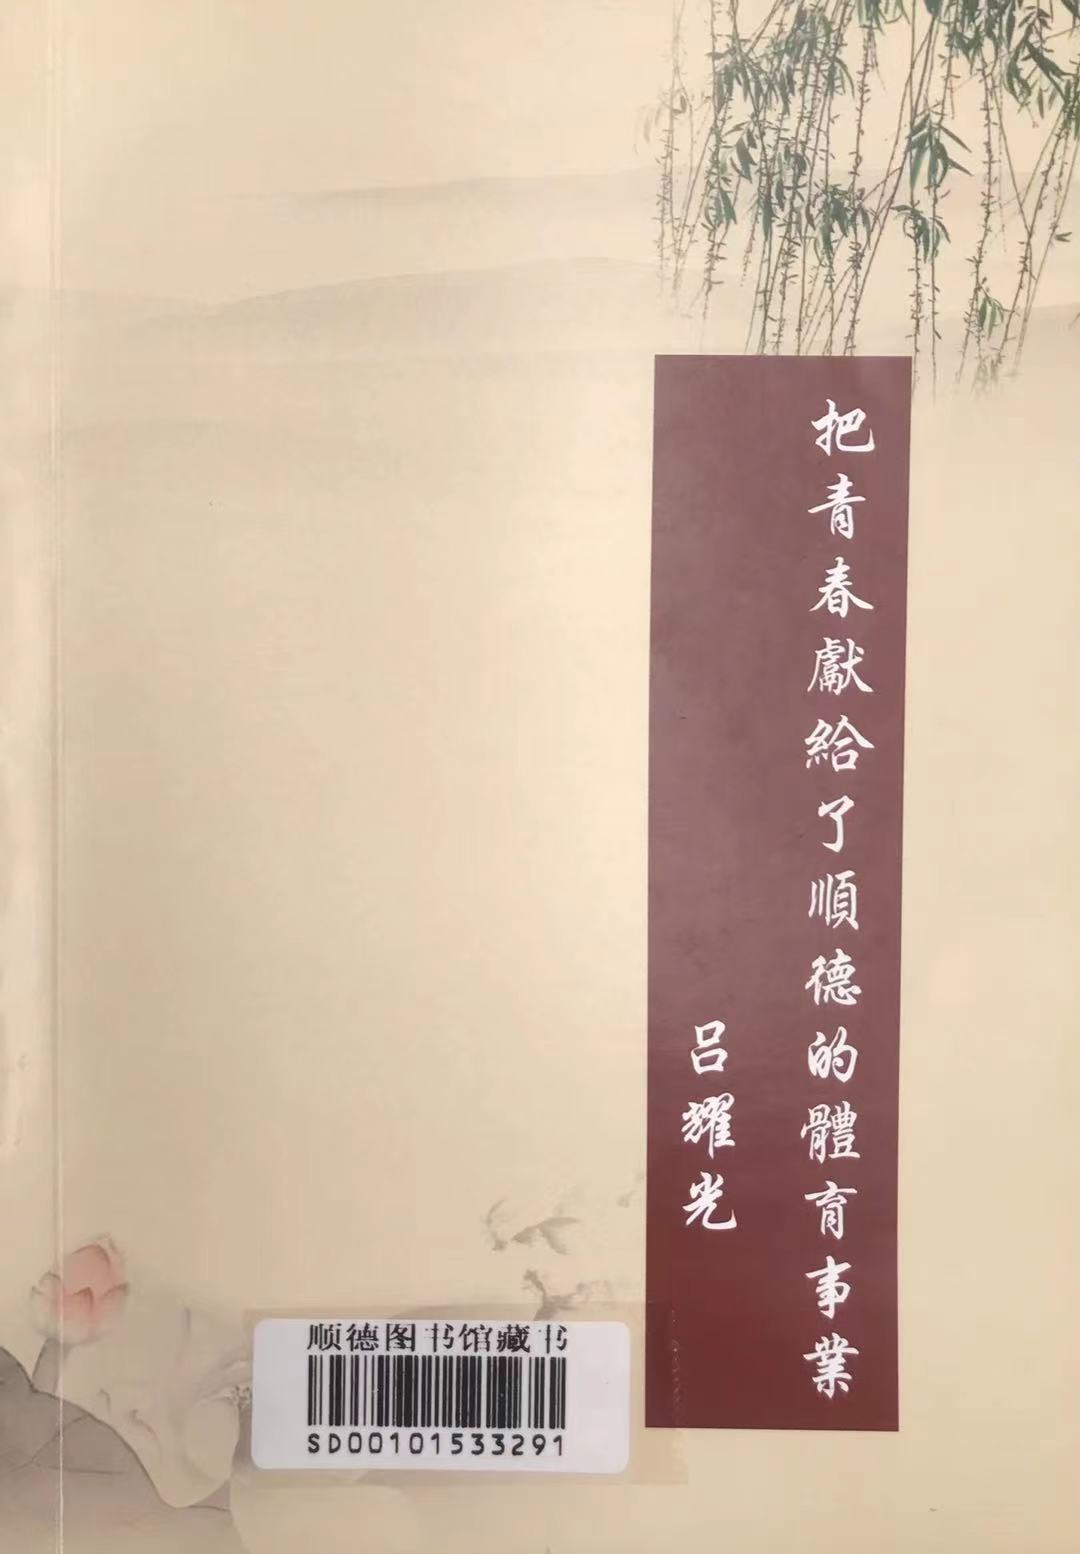 把青春獻給了順德的體育事業
吕耀光
顺德图书馆藏书
SD00101533291